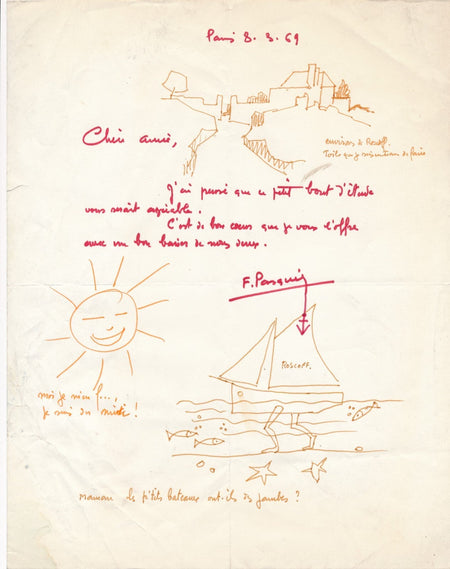 Paris 8. 3. 69
environs de Roscoff.
Toile que j'ai l'intention de faire
Chère amie,
J'ai pensé que ce petit bout d'étude
vous serait agréable.
C'est de bon coeur que je vous l'offre
avec un bon baiser de nous deux.
F. Pasqui
ROSCOFF.
moi je m'en f...,
je suis du midi !
maman les p'tits bateaux ont-ils des jambes ?